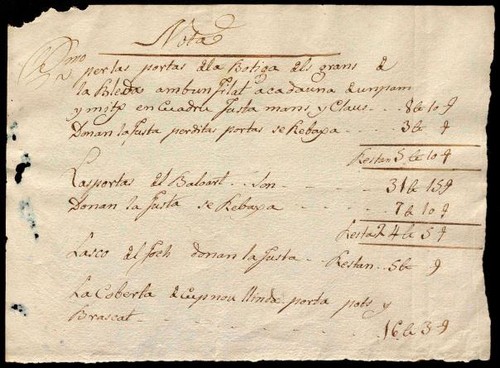 Nota
Pmo per las portas de la Botiga dels grans de
la Bleda ambun filat acadauna de un pam
y mitx en Cuadru fusta mans y Claus 8 ll 10 s
Donan la fusta per ditas portas se Rebaxa 3 ll s
Restan 5 ll 10 s
Las portas del Baluart son 31 ll 15 s
Donan la fusta se Rebaxa 7 ll 10 s
Resta 24 ll 5 s
Lasco del foch donan la fusta Restan 5 ll s
La Coberta de llinda porta pots y
Brascat
16 ll 3 s